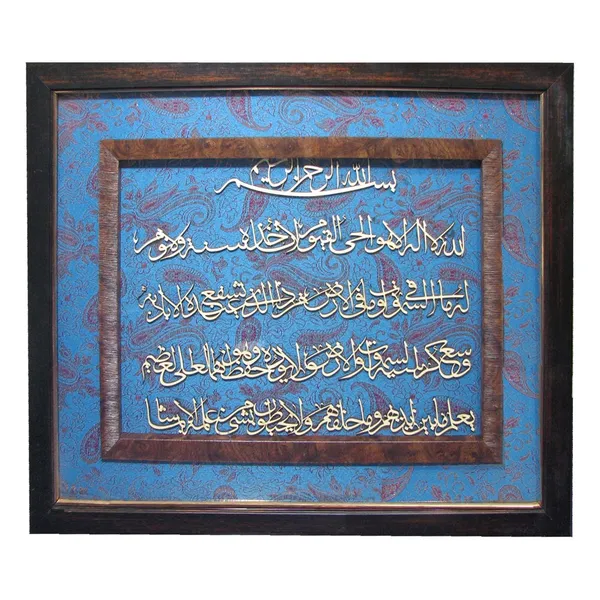 بسم الله الرحمن الرحيم
الله لا اله الا هو الحي القيوم لا تاخذه سنة ولا نوم
له ما في السموات وما في الارض من ذا الذي يشفع عنده الا باذنه
وسع كرسيه السموات والارض ولا يوده حفظهما وهو العلي العظيم
يعلم ما بين ايديهم وما خلفهم ولا يحيطون بشيء من علمه الا بما شا